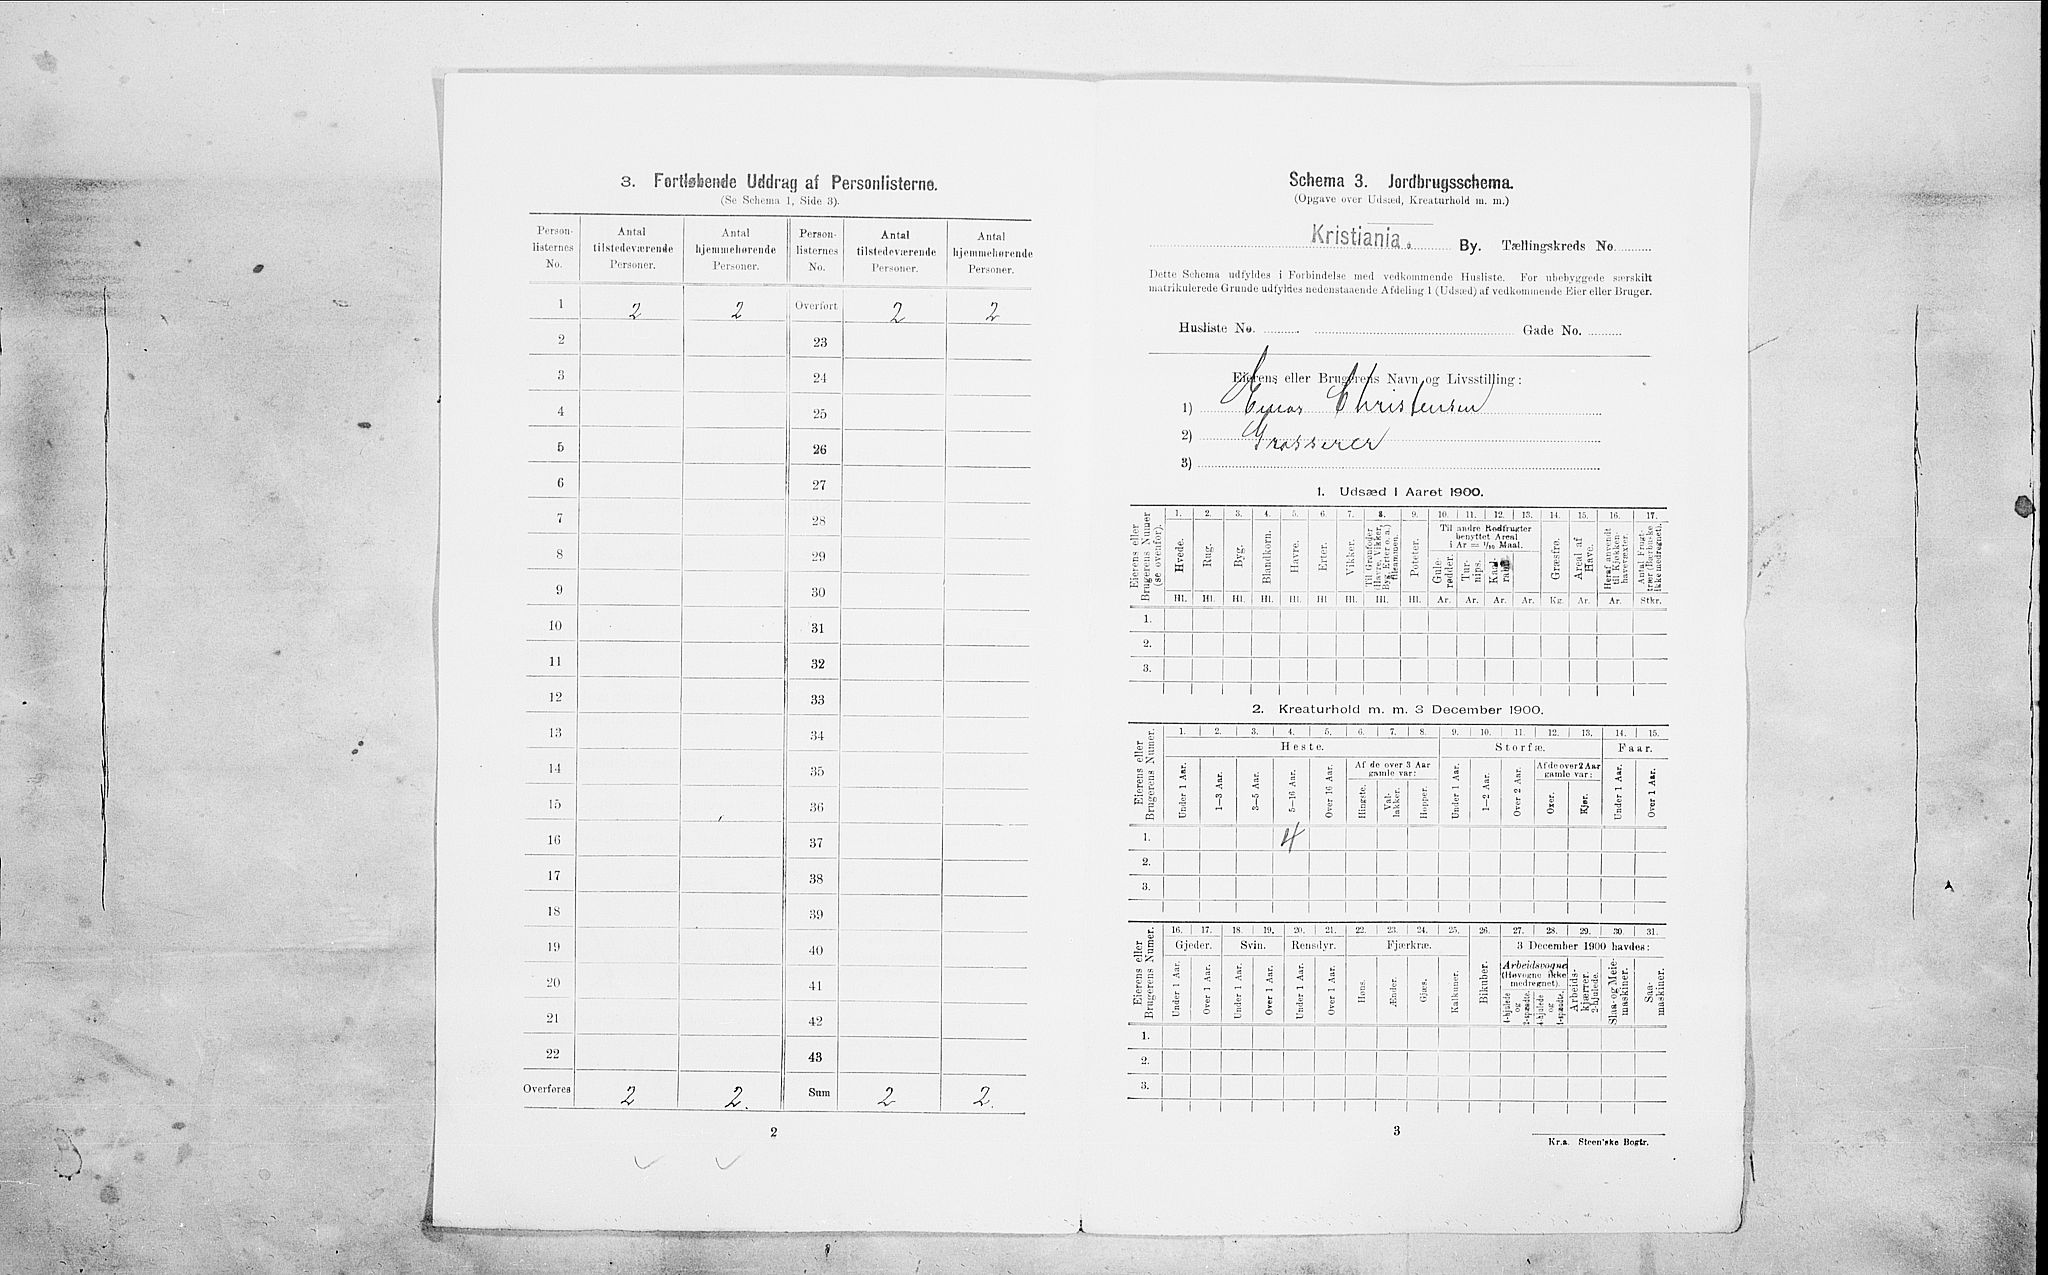 3. Fortløbende Uddrag af Personlisterne.
(Se Schema 1, Side 3).
Person-listernes No. Antal tilstedeværende Personer. Antal hjemmehørende Personer. Person-listernes No. Antal tilstedeværende Personer. Antal hjemmehørende Personer.
1 2 2 Overført 2 2
2 23
3 24
4 25
5 26
6 27
7 28
8 29
9 30
10 31
11 32
12 33
13 34
14 35
15 36
16 37
17 38
18 39
19 40
20 41
21 42
22 43
Overføres 2 2. Sum 2 2.
2
Schema 3. Jordbrugsschema.
(Opgave over Udsæd, Kreaturhold m. m.)
Kristiania. By. Tællingskreds No
Dette Schema udfyldes i Forbindelse med vedkommende Husliste. For ubebyggede særskilt
matrikulerede Grunde udfyldes nedenstaaende Afdeling 1 (Udsæd) af vedkommende Eier eller Bruger.
Husliste No. Gade No.
Eierens eller Brugerens Navn og Livsstilling:
1) Christensen
2) Grosserer
3)
1. Udsæd i Aaret 1900.
Eierens eller Brugerens Numer (se ovenfor).
1. 2. 3. 4. 5. 6. 7. 8. 9. 10. 11. 12. 13. 14. 15. 16. 17.
Til andre Rodfrugter benyttet Areal i Ar = 1/10 Maal.
Hvede. Rug. Byg. Blandkorn. Havre. Erter. Vikker. Til Grønfoder (Havre, Vikker, Byg, Erter o. a.) tilsammen. Poteter. Gule-rødder. Tur-nips. Græsfrø. Areal af Have. Heraf anvendt til Kjøkken-havevæxter. Antal Frugt-trær (Bærbuske ikke medregnet).
Hl. Hl. Hl. Hl. Hl. Hl. Hl. Hl. Hl. Ar. Ar. Ar. Ar. Kg. Ar. Ar. Stkr.
1.
2.
3.
2. Kreaturhold m. m. 3 December 1900.
Eierens eller Brugerens Numer.
1. 2. 3. 4. 5. 6. 7. 8. 9. 10. 11. 12. 13. 14. 15.
Heste. Storfæ. Faar.
Af de over 3 Aar gamle var: Af de over 2 Aar gamle var:
Under 1 Aar. 1—3 Aar. 3—5 Aar. 5—16 Aar. Over 16 Aar. Hingste. Val-lakker. Hopper. Under 1 Aar. 1—2 Aar. Over 2 Aar. Oxer. Kjør. Under 1 Aar. Over 1 Aar.
1. 4
2.
3.
Eierens eller Brugerens Numer.
16. 17. 18. 19. 20. 21. 22. 23. 24. 25. 26. 27. 28. 29. 30. 31.
Gjeder. Svin. Rensdyr. Fjærkræ. 3 December 1900 havdes:
Arbeidsvogne (Høvogne ikke medregnet).
Under 1 Aar. Over 1 Aar. Under 1 Aar. Over 1 Aar. Under 1 Aar. Over 1 Aar. Høns. Ænder. Gjæs. Kalkuner. Bikuber. 4-hjulede og 2-spændte. 4-hjulede og 1-spændte. Arbeids-kjærrer, 2-hjulede. Slaa- og Meie-maskiner. Saa-maskiner.
1.
2.
3.
3
Kr.a. Steen'ske Bogtr.